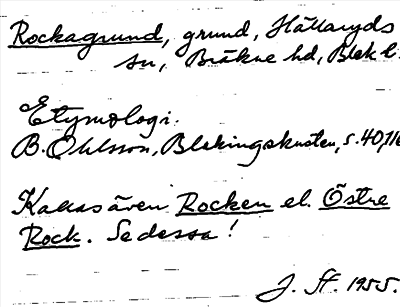 Rockagrund, grund, Hällaryds
sn, Bräkne hd, Blek l.
Etymologi.
B. Ohlsson, Blekingskusten, s. 40, 116
Kallas även Rocken el. Östre
Rock. Se dessa!
J. St. 1955.